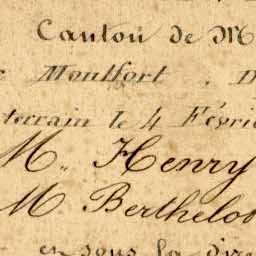 Canton de M
Montfort . D
terrain le 4 Févri
M. Henry
M Berthelo
en sous la dire